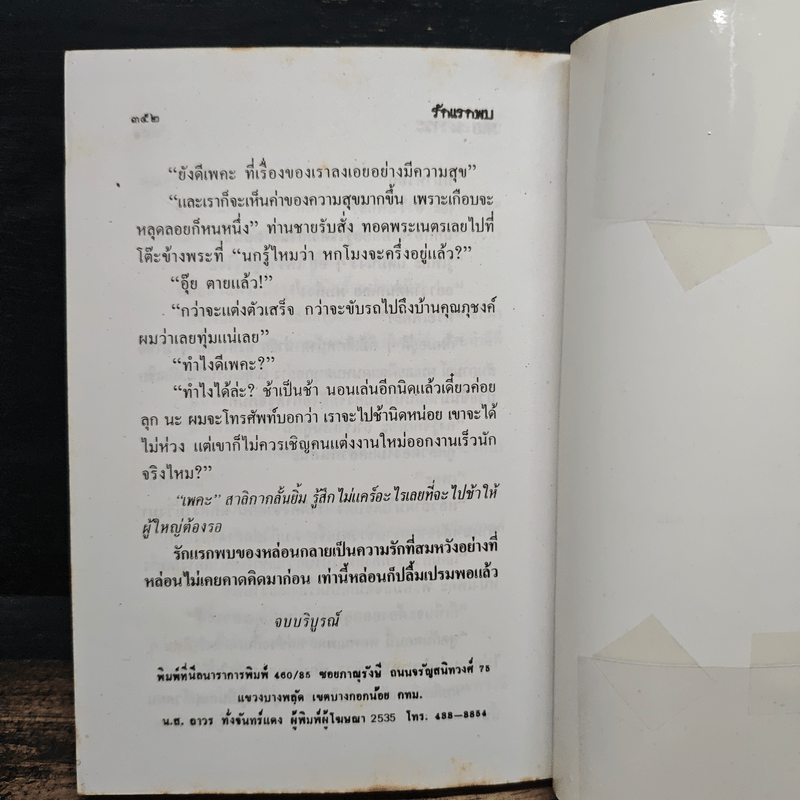 ๓๕๒
รักแรกพบ
“ยังดีเพคะ ที่เรื่องของเราลงเอยอย่างมีความสุข”
“และเราก็จะเห็นค่าของความสุขมากขึ้น เพราะเกือบจะ
หลุดลอยก็หนหนึ่ง” ท่านชายรับสั่ง ทอดพระเนตรเลยไปที่
โต๊ะข้างพระที่ “นกรู้ไหมว่า หกโมงจะครึ่งอยู่แล้ว?”
“อุ๊ย ตายแล้ว!”
“กว่าจะแต่งตัวเสร็จ กว่าจะขับรถไปถึงบ้านคุณภุชงค์
ผมว่าเลยทุ่มแน่เลย”
“ทำไงดีเพคะ?”
“ทำไงได้ล่ะ? ช้าเป็นช้า นอนเล่นอีกนิดแล้วเดี๋ยวค่อย
ลุก นะ ผมจะโทรศัพท์บอกว่า เราจะไปช้านิดหน่อย เขาจะได้
ไม่ห่วง แต่เขาก็ไม่ควรเชิญคนแต่งงานใหม่ออกงานเร็วนัก
จริงไหม?”
“เพคะ” สาลิกากลั้นยิ้ม รู้สึกไม่แคร์อะไรเลยที่จะไปช้าให้
ผู้ใหญ่ต้องรอ
รักแรกพบของหล่อนกลายเป็นความรักที่สมหวังอย่างที่
หล่อนไม่เคยคาดคิดมาก่อน เท่านี้หล่อนก็ปลื้มเปรมพอแล้ว
จบบริบูรณ์
พิมพ์ที่นีลนาราการพิมพ์ 460/85 ซอยภาณุรังษี ถนนจรัญสนิทวงศ์ 75
แขวงบางพลัด เขตบางกอกน้อย กทม.
น.ส. ถาวร ทั่งจันทร์แดง ผู้พิมพ์ผู้โฆษณา 2535 โทร. 433-3354